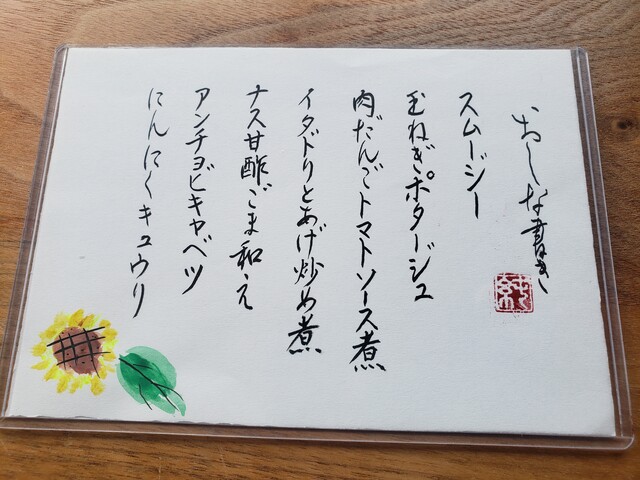 おしな書き
純
スムージー
玉ねぎポタージュ
肉だんごトマトソース煮
イタドリとあげ炒め煮
ナス甘酢ごま和え
アンチョビキャベツ
にんにくキュウリ